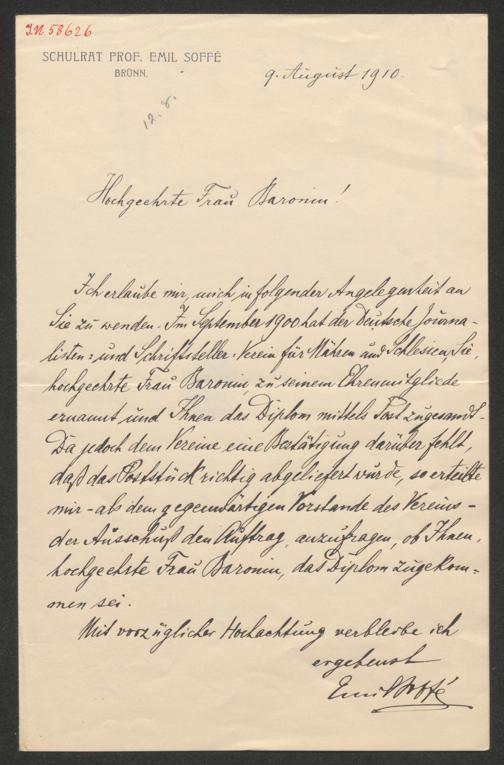 I.N. 58626
SCHULRAT PROF. EMIL SOFFÉ
BRÜNN,
9. August 1910.
12. 8.
Hochgeehrte Frau Baronin!
Ich erlaube mir, mich in folgender Angelegenheit an
Sie zu wenden. Im September 1900 hat der Deutsche Journa-
listen= und Schriftsteller-Verein für Mähren und Schlesien, Sie,
hochgeehrte Frau Baronin, zu seinem Ehrenmitgliede
ernannt und Ihnen das Diplom mittels Post zugesandt.
Da jedoch dem Vereine eine Bestätigung darüber fehlt,
daß das Poststück richtig abgeliefert wurde, so erteilte
mir – als dem gegenwärtigen Vorstande des Vereins –
der Ausschuß den Auftrag, anzufragen, ob Ihnen,
hochgeehrte Frau Baronin, das Diplom zugekom=
men sei.
Mit vorzüglicher Hochachtung verbleibe ich
ergebenst
Emil Soffé